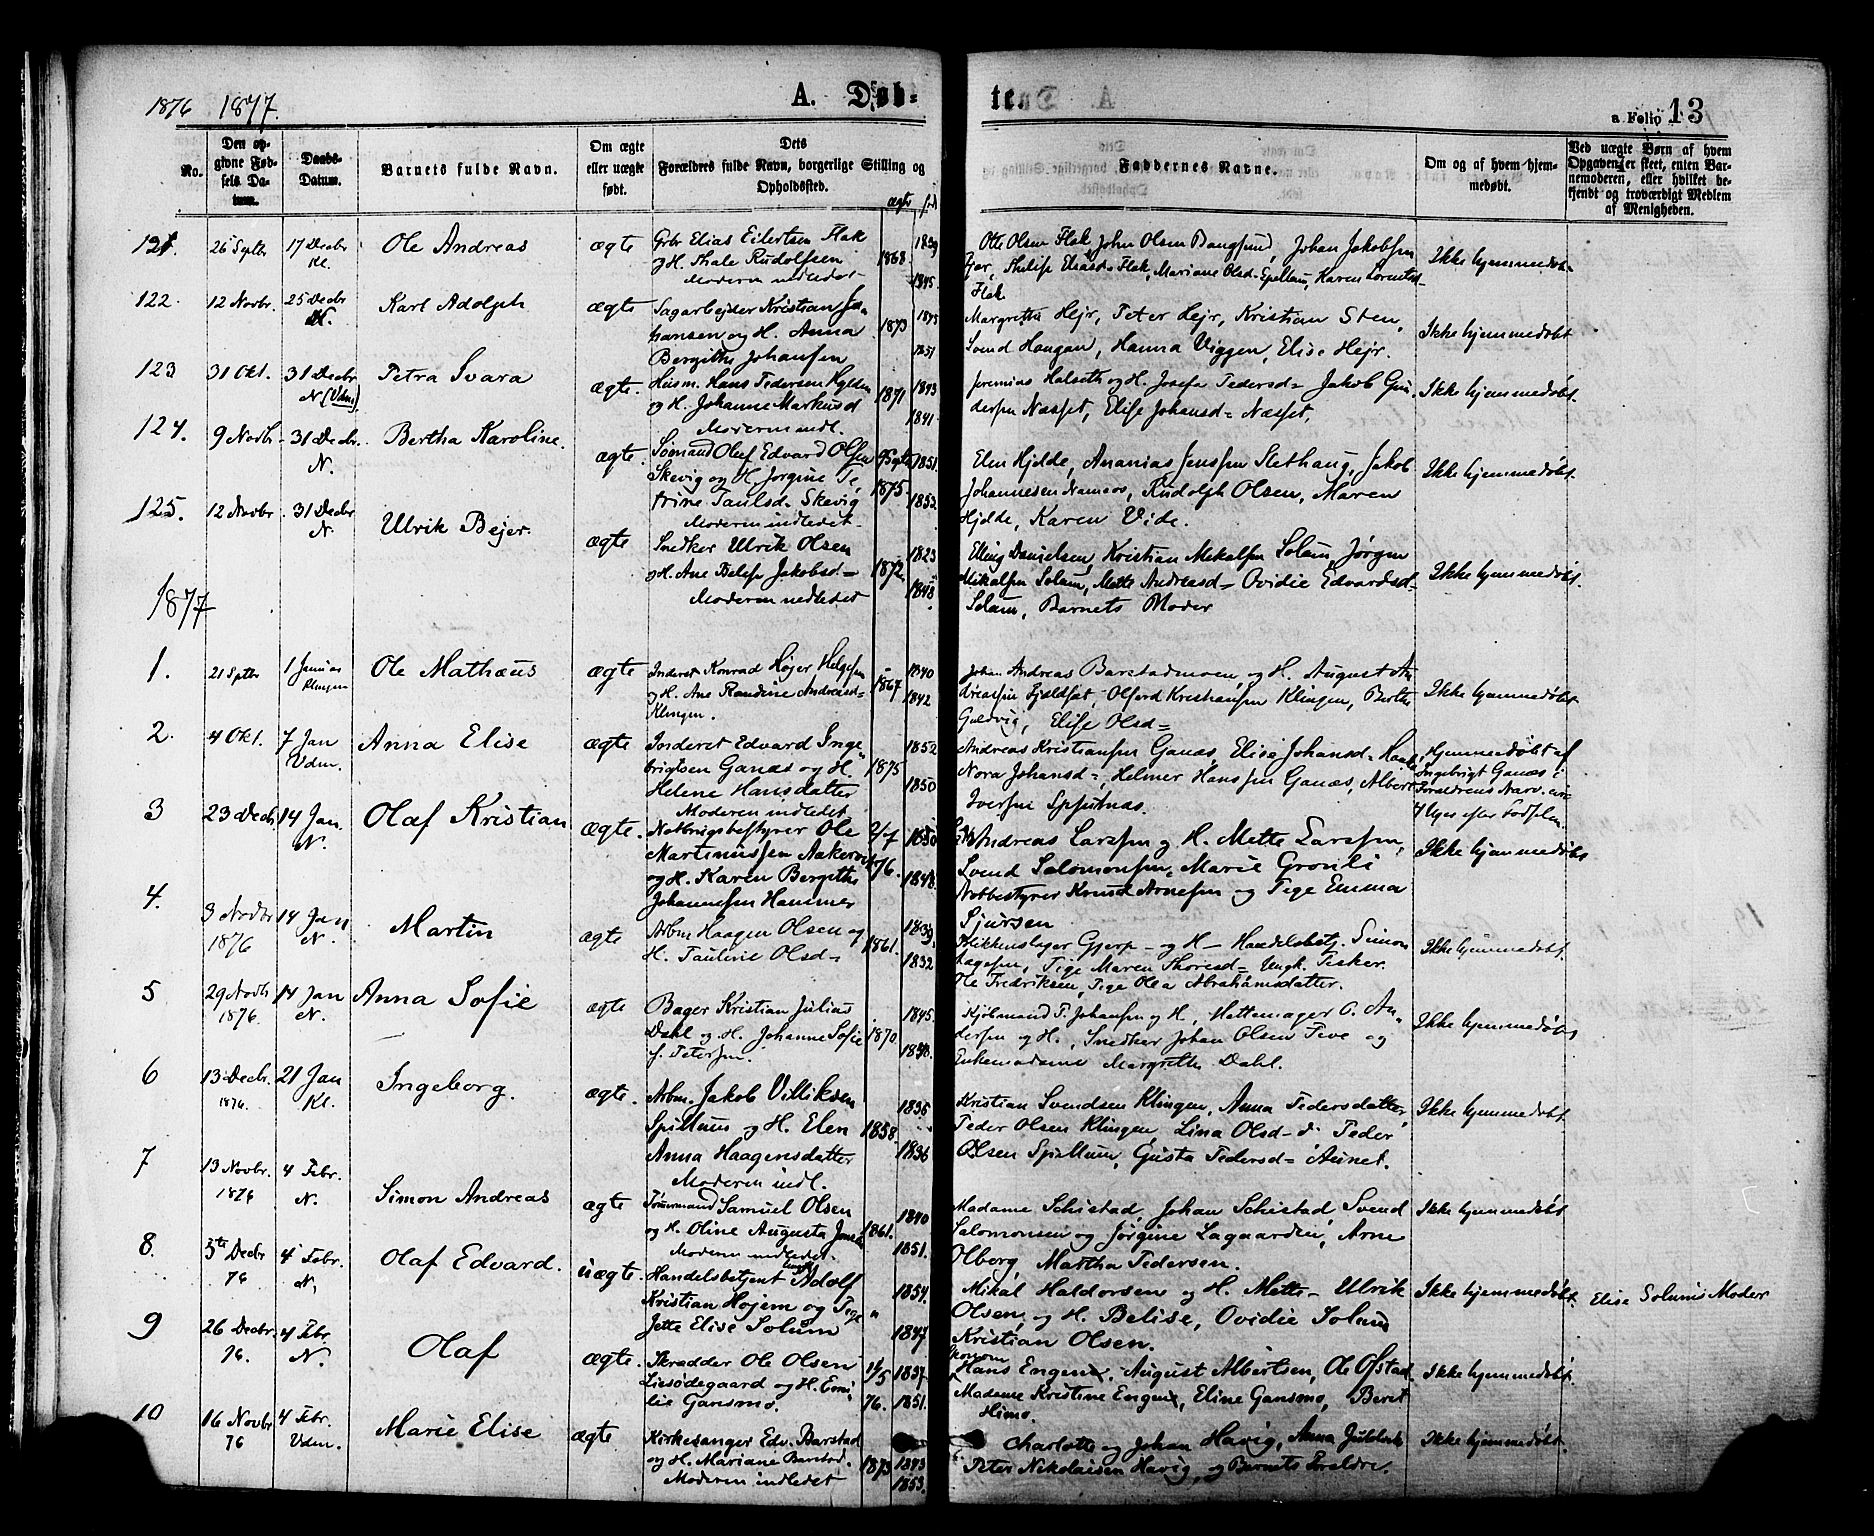 1876 1877.
A. Døb-
te
a Folio 13
No.
Den op-
givne Fød-
sels Da-
tum.
Daabs-
Datum.
Barnets fulde Navn.
Om ægte
eller uægte
født.
Dets
Forældres fulde Navn, borgerlige Stilling og
Opholdssted.
ægte
Faddernes Navne.
Om og af hvem hjem-
medøbt.
Ved uægte Børn af hvem
Opgaven er skeet, enten Bar-
nemoderen, eller hvilket be-
kjendt og troværdigt Medlem
af Menigheden.
121. 26 Septbr 17 Decbr Kl. Ole Andreas ægte
Gbr Elias Eilertsen Flak
og H. Thale Rudolfsen
Moderen indledet
1868. 1839 1845.
Otte Olsen Flak, John Olsen Bangsund, Johan Jakobsen
Ikke hjemmedøbt
122. 12 Novbr. 25 Decbr N. Karl Adolph ægte
Sagarbejder Kristian Jo-
hansen og H. Anna
Bergithe Johansen
1873 1851
Margrethe Hejr, Peter Hejr, Kristian Sten,
Svend Haugan, Hanna Viggen, Elise Hejr.
Ikke hjemmedøbt
123 31 Okt. 31 Decbr N (Vdm) Petra Svara ægte.
Husm. Hans Pedersen Hylden
og H. Johanne Markusd
Moderen indl.
1871 1843 1841
Jeremias Halseth og H. Josefa Pedersd= Jakob Gun
dersen Næsset, Elise Johansd= Næsset,
Ikke hjemmedøbt.
124. 9 Novbr 31 Decbr. N. Bertha Karoline. ægte.
Sømand Oluf Edvard Olsen
Skevig og H. Jørgine Pe
trine Paulsd. Skevig
Moderen indledet
1875 1851. 1852.
Elen Hjelde, Ananias Jenssen Slethaug, Jakob
Johannesen Namsos, Rudolph Olsen, Maren
Hjelde, Karen Vide.
Ikke hjemmedøbt.
125. 12 Novbr. 31 Decbr N. Ulrik Bejer. ægte
Snedker Ulrik Olsen
og H. Ane Belise Jakobsd=
Moderen indledet
1872. 1823 1848
Elling Danielsen, Kristian Mikalsen Solum, Jørgen
Mikalsen Solum, Mette Andreasd- Ovidie Edvardsd=
Solum, Barnets Moder
Ikke hjemmedøbt.
1877
1. 21 Septbr 1 Januar Klingen Ole Mathæus ægte
Inderst Konrad Højer Helgesen
og H. Ane Randine Andreasd=
Klingen.
1867 1840 1842
Johan Andreas Barstadmoen, og H. August An
dreassen Fjeldset, Olferd Kristiansen Klingen, Berthe
Guldvig, Elise Olsd=
Ikke hjemmedøbt
2. 4 Okt. 7 Jan Vdm. Anna Elise ægte
Inderst Edvard Inge
brigtsen Ganæs og H.
Helene Hansdatter
Moderen indledet
1875 1852 1850
Andreas Kristiansen Ganæs, Elise Johansd=
Nora Johansd=, Helmer Hanssen Ganæs, Albert
Iversen Spjutnæs.
Hjemmedøbt af
Ingebrigt Ganæs i
Forældrenes Nærv.
4 Uger efter Fødselen.
3 23 Decbr 14 Jan. N. Olaf Kristian ægte.
Notbrugsbestyrer Ole
Martinussen Aakervig
og H. Karen Bergithe
Johannesen Hammer
2/7 76. 1850 1848.
Andreas Larssen og H. Mette Larssen,
Svend Salomonsen, Marie Grønli
Notbestyrer Knud Arnesen og Pige Emma
Sjursen
Ikke hjemmedøbt
4. 3 Novbr 1876 14 Jan N. Martin ægte
Arbm Haagen Olsen og
H. Pauline Olsd=
1861. 1839. 1832
Blikkenslager Gjerp - og H - Handelsbetj. Simon
Aagesen, Pige Maren Thoresd= Ungk. Peder.
Ole Fredriksen, Pige Olea Abrahamsdatter.
Ikke hjemmedøbt.
5 29 Novbr 1876. 14 Jan N. Anna Sofie ægte
Bager Kristian Julius
Dahl og H. Johanne Sofie
f. Petersen.
1870. 1845. 1850.
Kjølmand P. Johansen og H, Hattemager O. An
dersen og H., Snedker Johan Olsen Teve og
Enkemadame Margrethe Dahl.
Ikke hjemmedøbt
6 13 Decbr. 1876. 21 Jan Kl. Ingeborg. ægte.
Arbm. Jakob Villiksen
Spillum og H. Elen
Anna Haagensdatter
Moderen indl.
1858. 1835 1836
Kristian Svendsen Klingen, Anna Pedersdatter,
Peder Olsen Klingen, Lina Olsd- d. Peder
Olsen Spillum, Gusta Pedersd= Aunet.
Ikke hjemmedøbt
7 13 Novbr. 1876 4 Febr. N. Simon Andreas ægte
Tømmermand Samuel Olsen
og H. Oline Augusta
Moderen indledet.
1861. 1840 1851.
Madame Schistad, Johan Schistad, Svend
Salomonsen og Jørgine Lagaardin, Arne
Olborg Martha Pedersen.
Ikke hjemmedøbt
8. 5te Decbr 76 4 Febr. N. Olaf Edvard. uægte.
Handelsbetjent Ungk. Adolf
Kristian Højem og Pige
Jette Elise Solum
" 1854. 1847
Mikal Haldorsen og H. Mette - Ulrik
Olsen, og H. Belise, Ovidie Solum
Kristian Olsen.
Ikke hjemmedøbt. Elise Solum Moder
9 26 Decbr 76. 4 Febr. N. Olaf ægte.
Skrædder Ole Olsen
Liesødegaard og H. Emi
lie Gansmo.
76. 1837. 1851.
Økonom
Hans Engen, August Albertsen, Ole Ofstad.
Madame Kristine Engen, Eline Gansmo, Beret
Himo.
Ikke hjemmedøbt.
10 16 Novbr 76 4 Febr. Vdm. Marie Elise ægte
Kirkesanger Edv. Barstad
og H. Mariane Barstad.
Moderen indledet
1873 1843 1853.
Charlotte og Johan Havig, Anna
Peter Nikolaisen Havig, og Barnets Forældre.
Ikke hjemmedøbt.